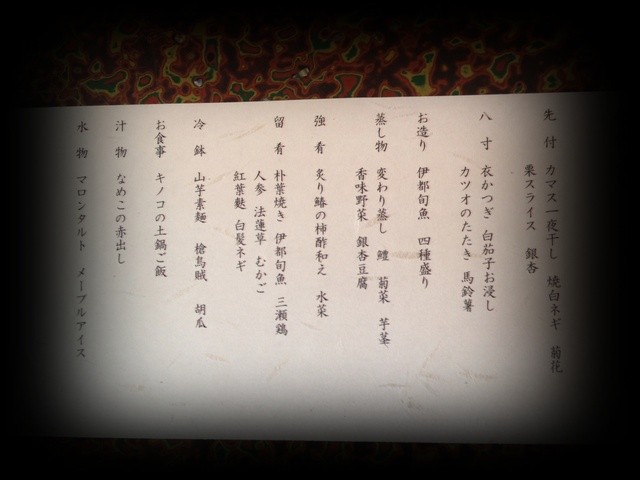 先 付　カマス一夜干し　焼白ネギ　菊花
栗スライス　銀杏
八 寸　衣かつぎ　白茄子お浸し
カツオのたたき　馬鈴薯
お造り　伊都旬魚　四種盛り
蒸し物　変わり蒸し　鱧　菊菜　芋茎
香味野菜　銀杏豆腐
強 肴　炙り鰆の柿酢和え　水菜
留 肴　朴葉焼き　伊都旬魚　三瀬鶏
人参　法蓮草　むかご
紅葉麩　白髪ネギ
冷 鉢　山芋素麺　槍烏賊　胡瓜
お食事　キノコの土鍋ご飯
汁 物　なめこの赤出し
水 物　マロンタルト　メープルアイス